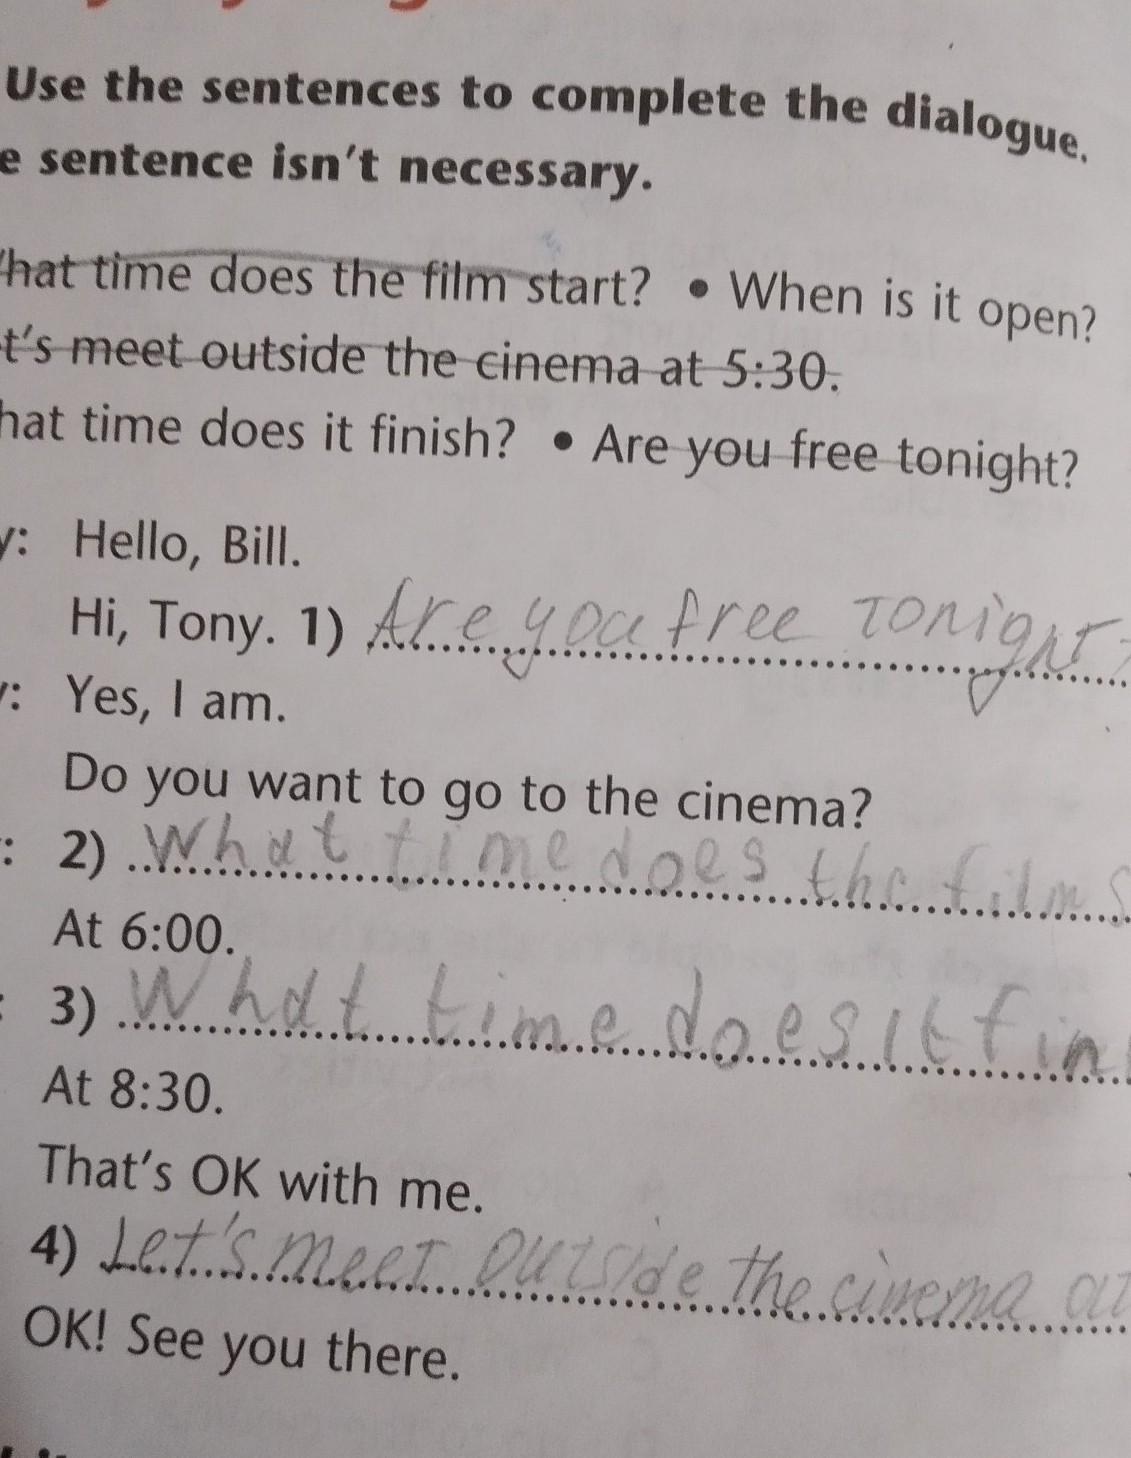 Use the sentences to complete the dialogue.
e sentence isn't necessary.
hat time does the film start? • When is it open?
t's meet outside the cinema at 5:30.
hat time does it finish? • Are you free tonight?
y: Hello, Bill.
Hi, Tony. 1) Are you free tonight?
: Yes, I am.
Do you want to go to the cinema?
: 2) What time does the film s
At 6:00.
: 3) What time does it fin
At 8:30.
That's OK with me.
4) Let's meet outside the cinema at
OK! See you there.